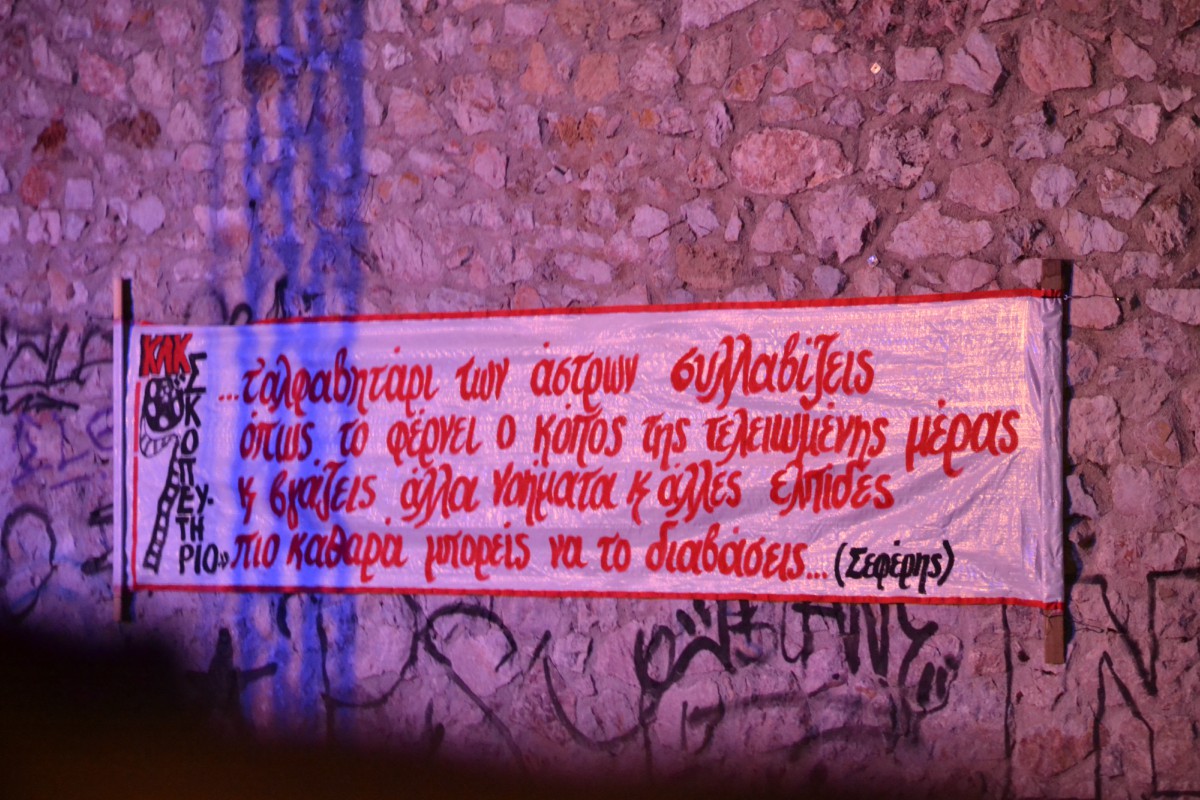 ΚΛΚ
Σ
Κ
Ο
Π
ΕΥ-
ΤΗ
ΡΙΟ»
...ταλφαβητάρι των άστρων συλλαβίζεις
όπως το φέρνει ο κόπος της τελειωμένης μέρας
κ βγάζεις άλλα νοήματα κ άλλες ελπίδες
πιο καθαρά μπορείς να το διαβάσεις... (Σεφέρης)